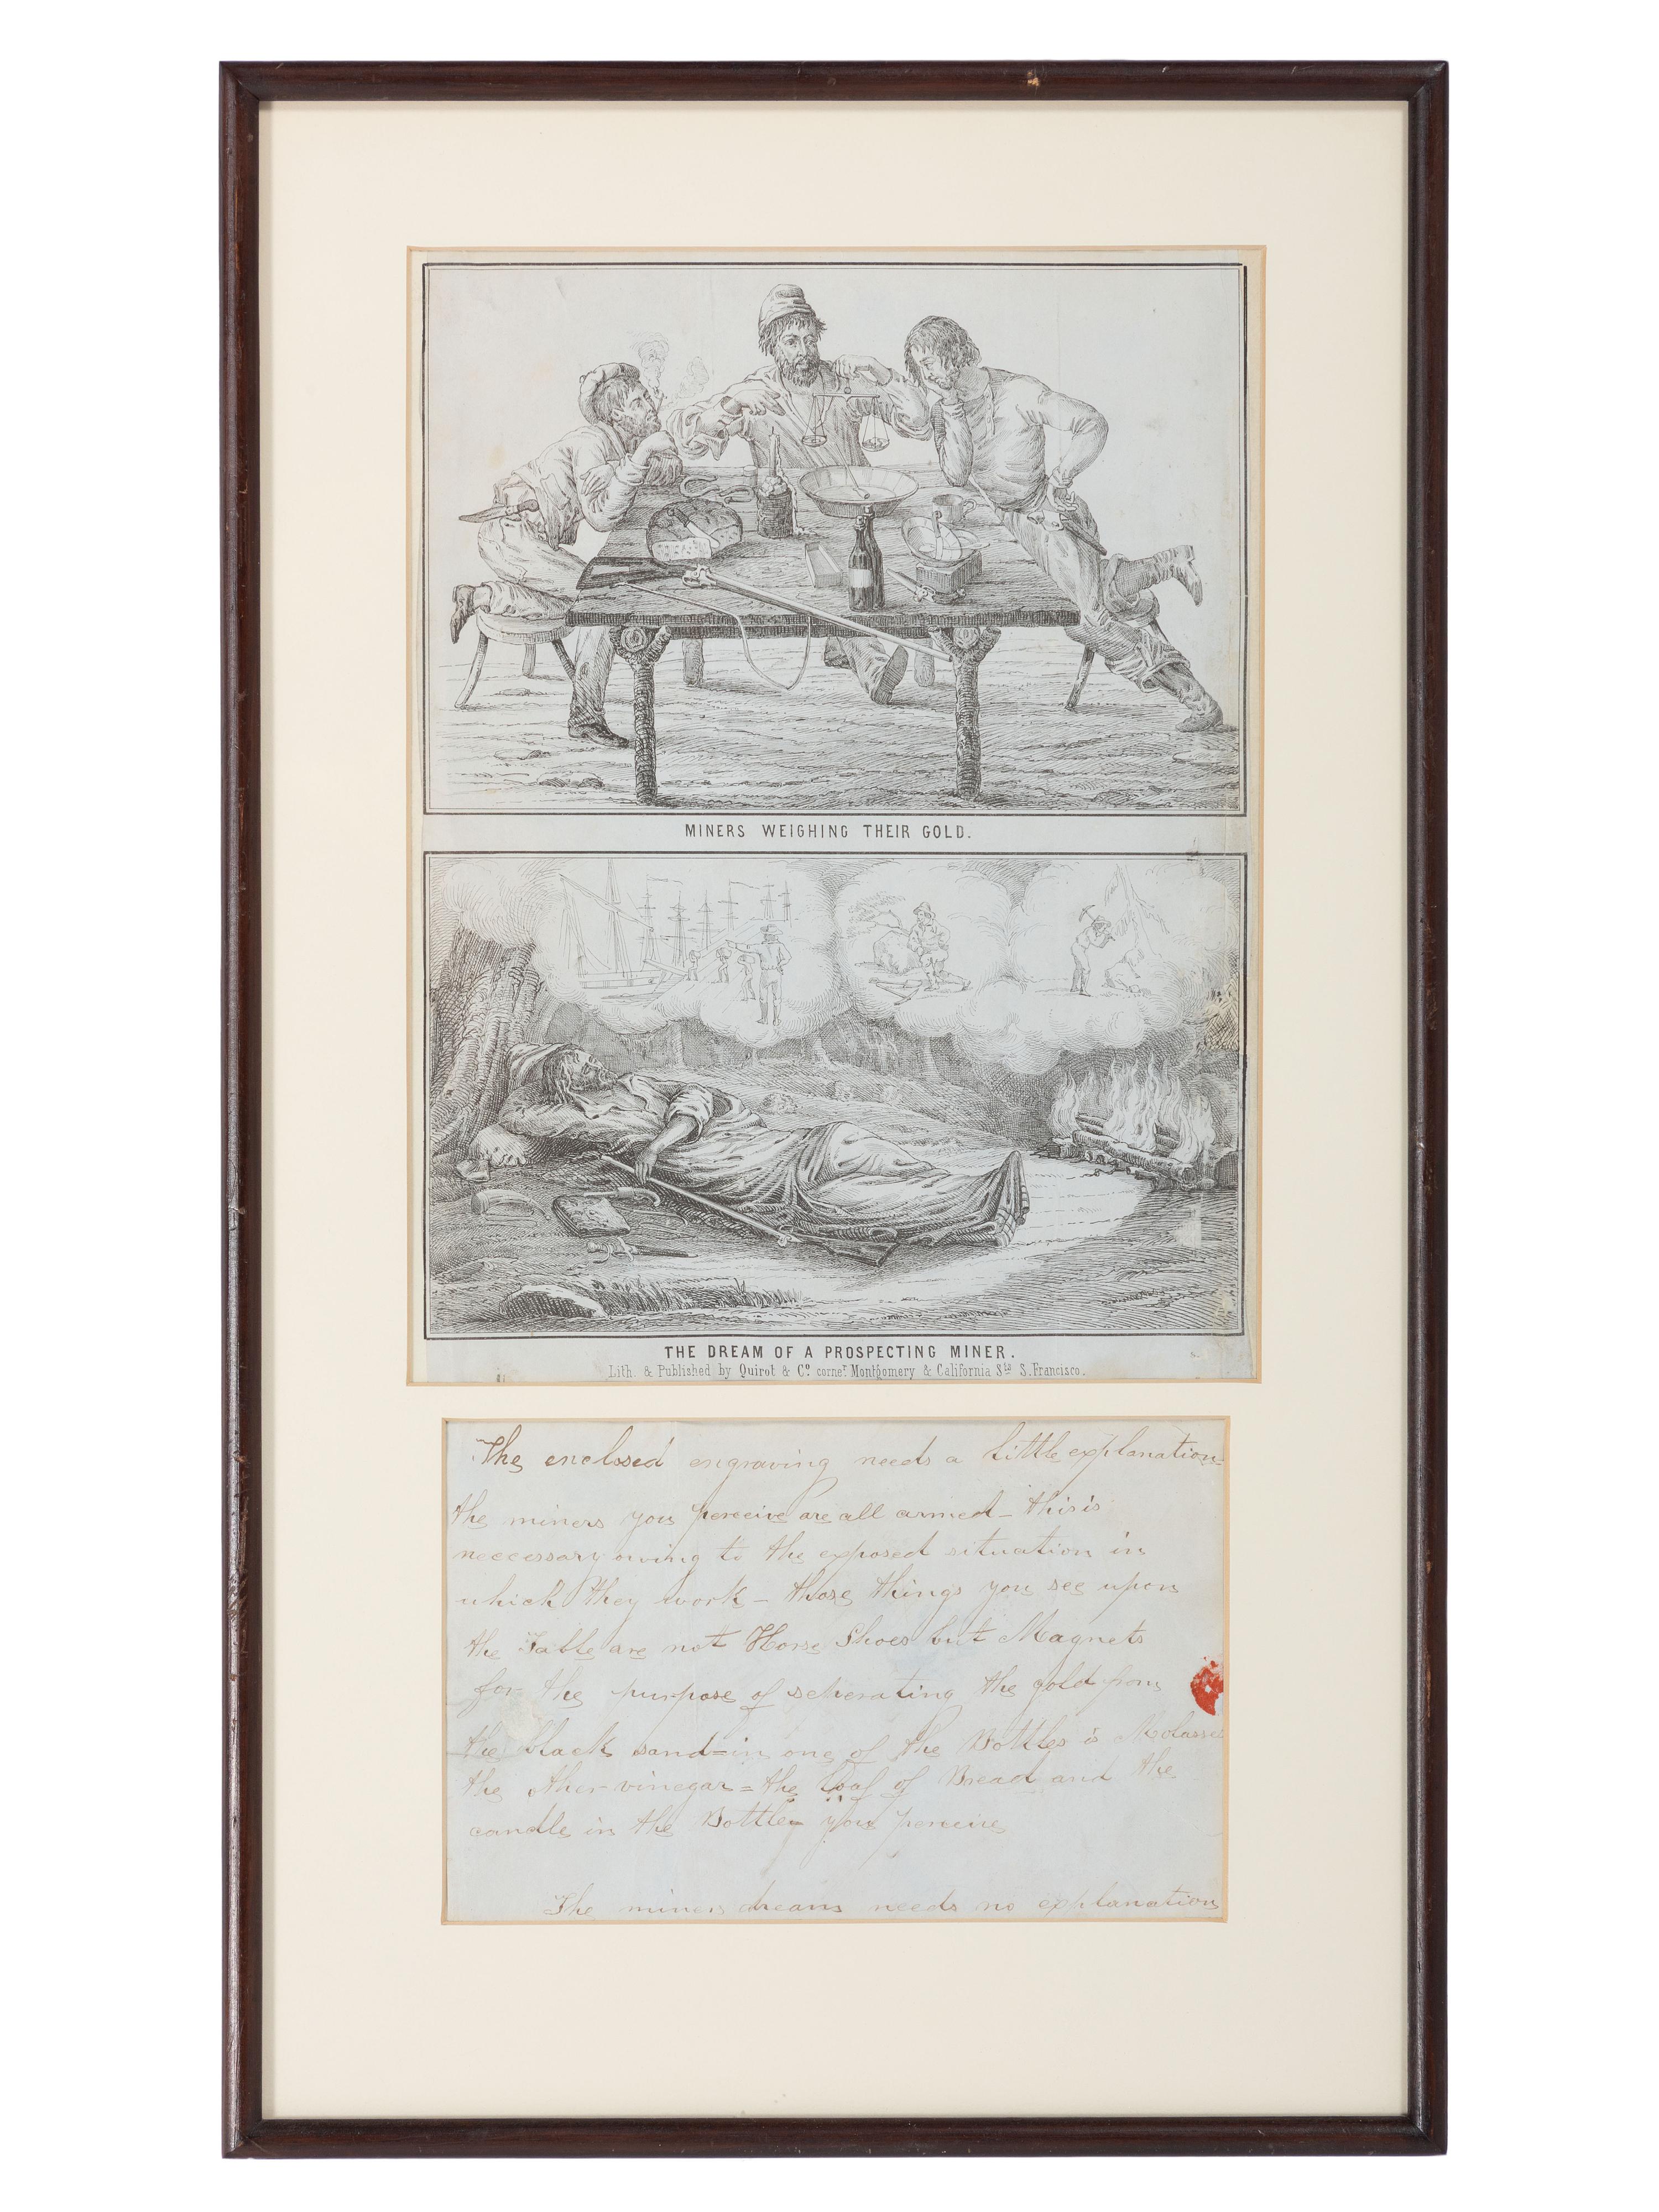 MINERS WEIGHING THEIR GOLD.
THE DREAM OF A PROSPECTING MINER.
Lith. & Published by Quirot & Co. corner Montgomery & California Sts S. Francisco.
The enclosed engraving needs a little explanation
the miners you perceive are all armed - this is
neccessary owing to the exposed situation in
which they work - those things you see upon
the Table are not Horse Shoes but Magnets
for the purpose of seperating the gold from
the black sand - in one of the Bottles is Molasses
the other vinegar = the Loaf of Bread and the
candle in the Bottle you perceive
The miners dream needs no explanation